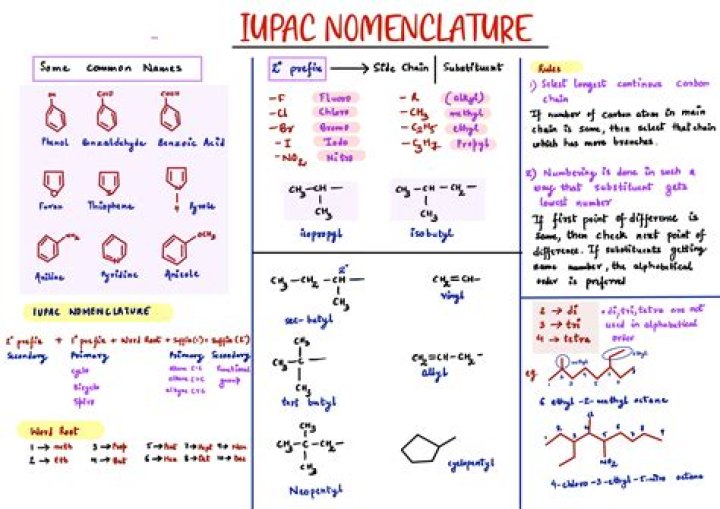 IUPAC NOMENCLATURE
Some Common Names
OH
CHO
COOH
Phenol Benzaldehyde Benzoic Acid
Furan Thiophene Pyrole
Aniline Pyridine Anisole
OCH3
IUPAC NOMENCLATURE
2° prefix + 1° prefix + Word Root + Suffix(1°) + Suffix (2°)
Secondary Primary Primary Secondary
cyclo
Bicyclo
Spiro
alkane C-C
alkene C=C
alkyne C≡C
functional
group
Word Root
1 → meth 3 → Prop 5 → Pent 7 → Hept 9 → Non
2 → Eth 4 → But 6 → Hex 8 → Oct 10 → Dec
2° prefix → Side Chain | Substituent
-F Fluoro
-Cl Chloro
-Br Bromo
-I Iodo
-NO2 Nitro
-R (alkyl)
-CH3 methyl
-C2H5 ethyl
-C3H7 Propyl
CH3-CH-
CH3
isopropyl
CH3-CH-CH2-
CH3
isobutyl
2°
CH3-CH2-CH-
CH3
sec-butyl
CH2=CH-
vinyl
CH3
CH3-C-
CH3
tert butyl
CH2=CH-CH2-
allyl
CH3
CH3-C-CH2-
CH3
Neopentyl
cyclopentyl
Rules
1) Select longest continous carbon
chain
If number of carbon atom in main
chain is same, then select that chain
which has more branches.
2) Numbering is done in such a
way that substituent gets
lowest number
If first point of difference is
same, then check next point of
difference. If substituents getting
same number, the alphabetical
order is preferred
2 → di
3 → tri
4 → tetra
• di, tri, tetra are not
used in alphabetical
order
eg
methyl
ethyl
6 ethyl -2- methyl octane
NO2
4-chloro-3-ethyl-5-nitro octane